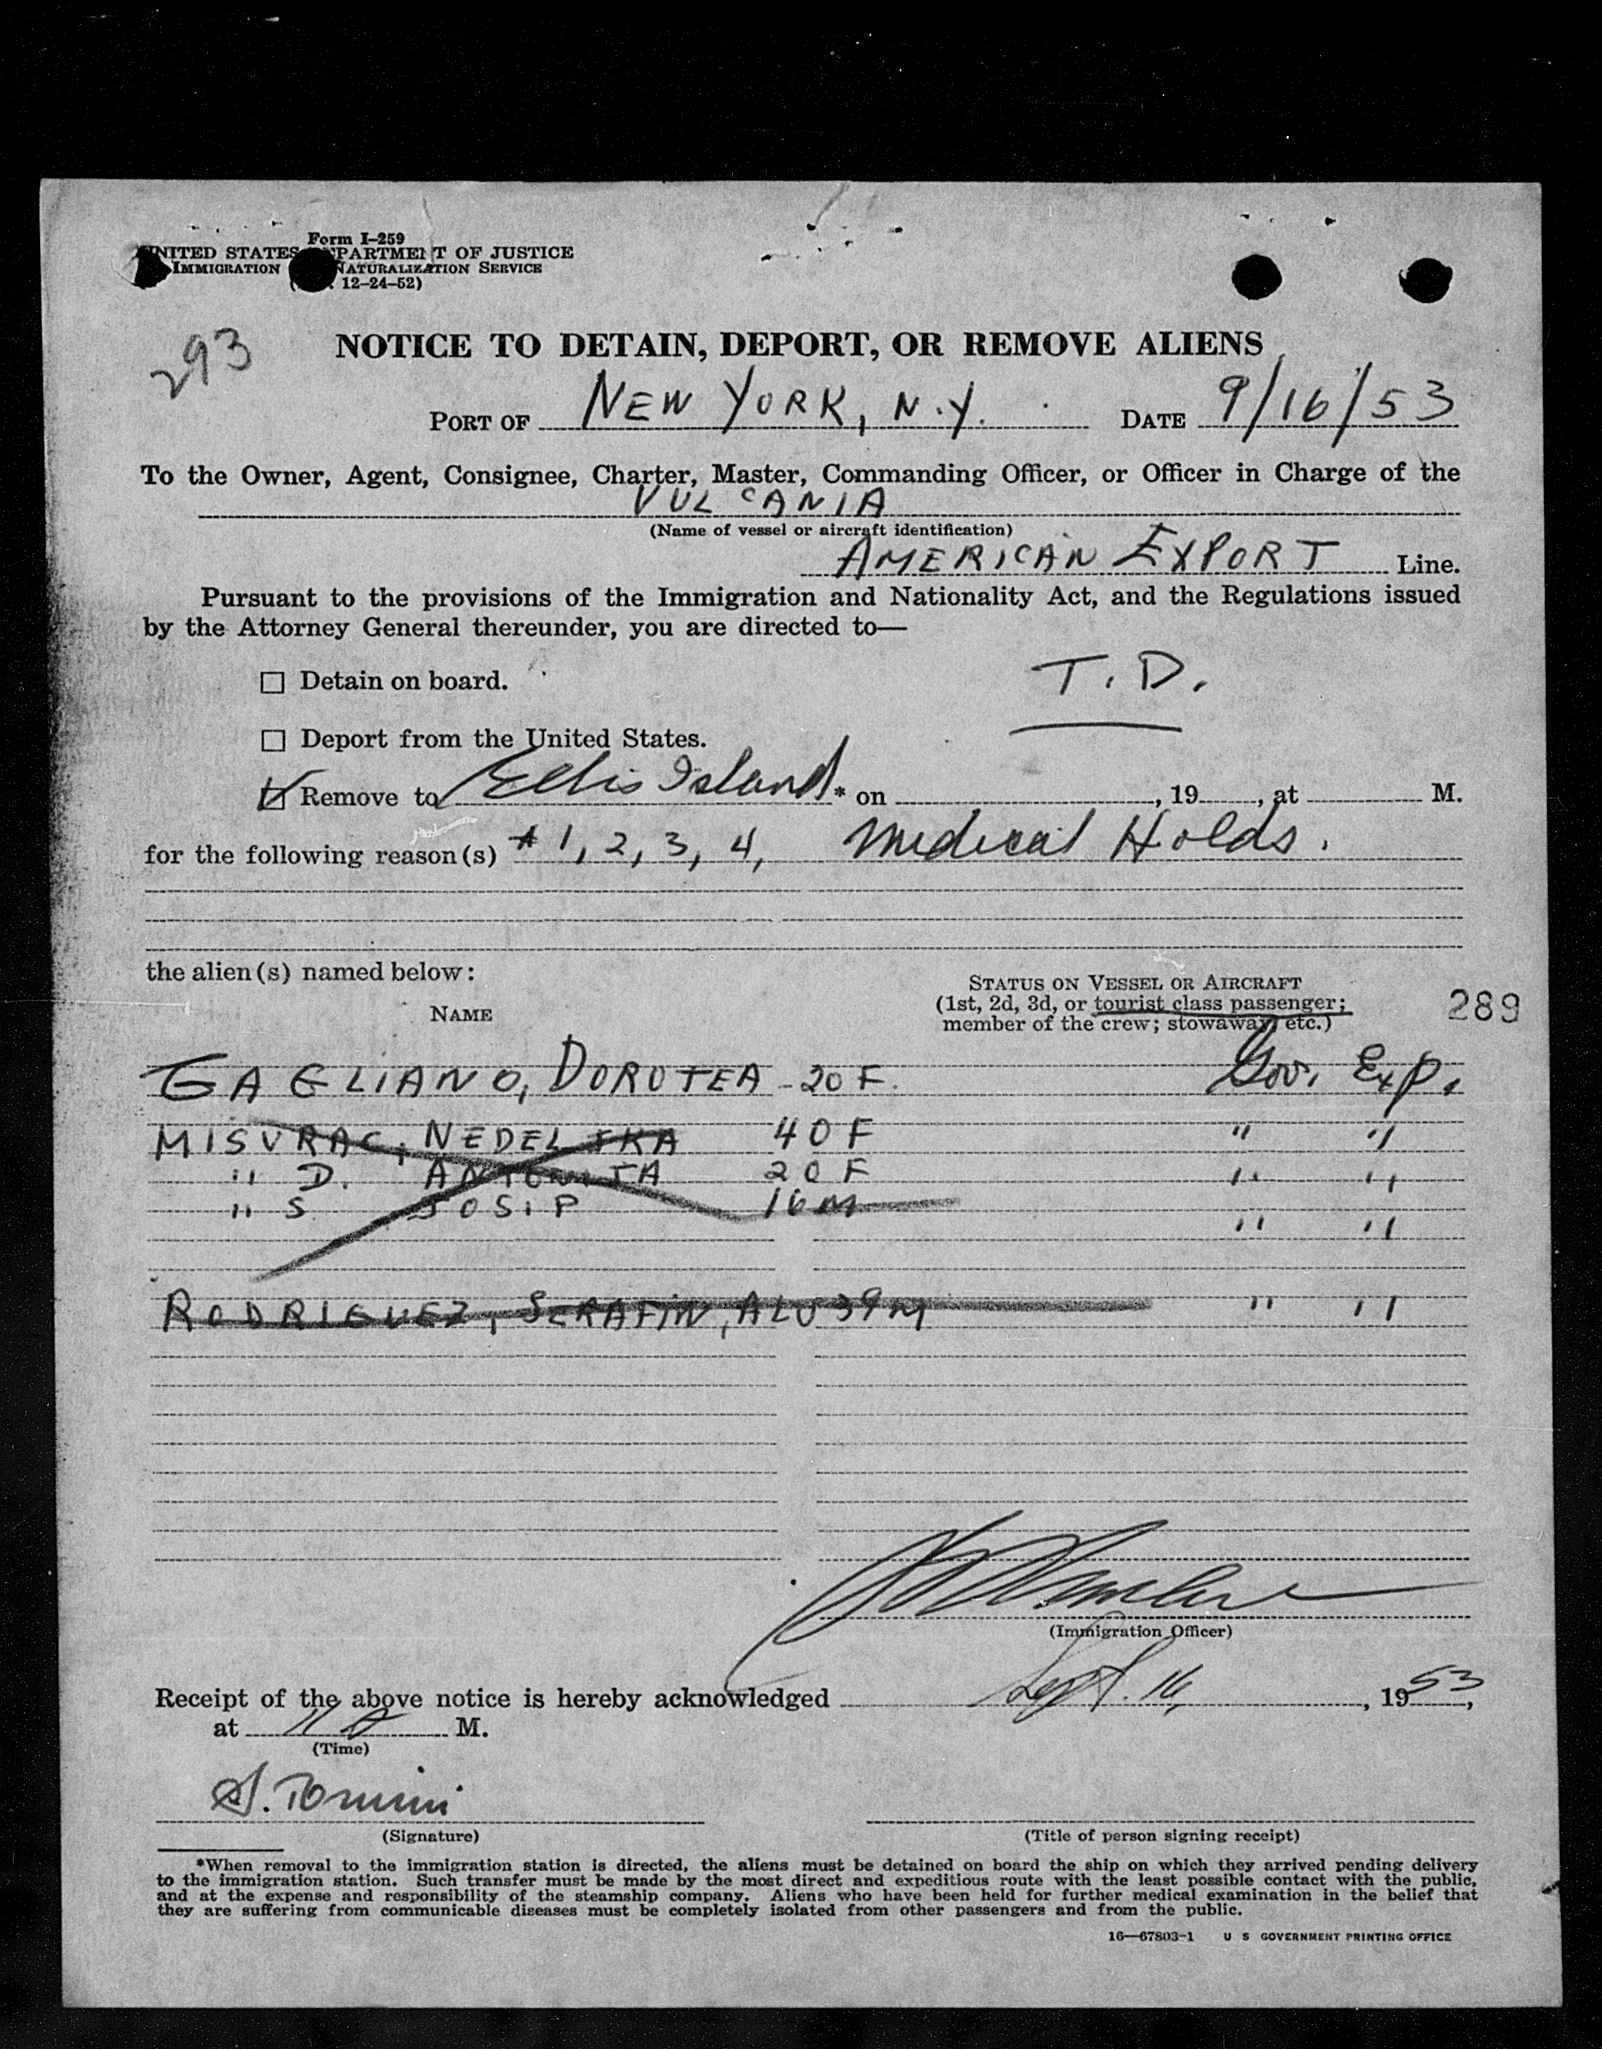 Form I-259
UNITED STATES DEPARTMENT OF JUSTICE
IMMIGRATION NATURALIZATION SERVICE
12-24-52)
293
NOTICE TO DETAIN, DEPORT, OR REMOVE ALIENS
PORT OF NEW YORK, N.Y. DATE 9/16/53
To the Owner, Agent, Consignee, Charter, Master, Commanding Officer, or Officer in Charge of the
VULCANIA
(Name of vessel or aircraft identification)
AMERICAN EXPORT Line.
Pursuant to the provisions of the Immigration and Nationality Act, and the Regulations issued
by the Attorney General thereunder, you are directed to—
☐ Detain on board.
T. D.
☐ Deport from the United States.
☑ Remove to Ellis Island * on , 19 , at M.
for the following reason(s) # 1, 2, 3, 4, Medical Holds.
the alien(s) named below:
NAME
STATUS ON VESSEL OR AIRCRAFT
(1st, 2d, 3d, or tourist class passenger;
member of the crew; stowaway, etc.)
289
GAGLIANO, DOROTEA - 20 F. Gov. Exp.
MISURAC, NEDELJKA 40 F " "
" D. ANTONITA 20 F " "
" S JOSIP 16 M " "
RODRIGUEZ, SERAFIN, ALV 39 M " "
(Immigration Officer)
Receipt of the above notice is hereby acknowledged Sept. 16, , 1953,
at 11 A M.
(Time)
S. Tomini
(Signature)
(Title of person signing receipt)
*When removal to the immigration station is directed, the aliens must be detained on board the ship on which they arrived pending delivery
to the immigration station. Such transfer must be made by the most direct and expeditious route with the least possible contact with the public,
and at the expense and responsibility of the steamship company. Aliens who have been held for further medical examination in the belief that
they are suffering from communicable diseases must be completely isolated from other passengers and from the public.
16—67803-1 U S GOVERNMENT PRINTING OFFICE